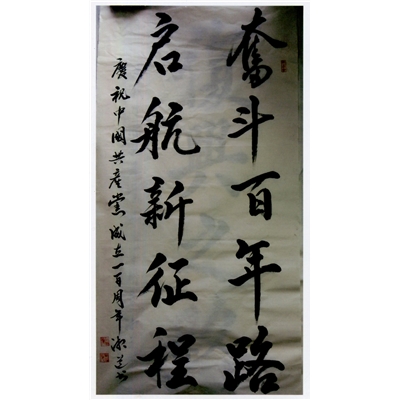 奮斗百年路
启航新征程
慶祝中國共產黨成立一百周年